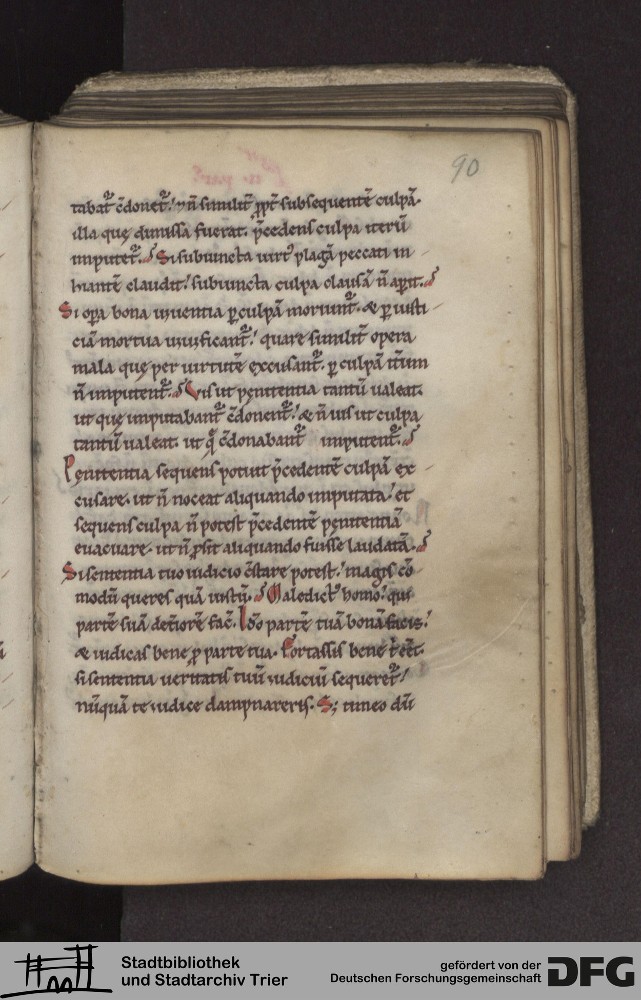 90
tabat᷑ c̄donet᷑. / ⁊ n̄ similit᷑ ꝓpt᷑ subsequentē culpā.
illa quę dimissa fuerat. p̄cedens culpa iterū
imputet᷑. Si subiuncta uirt᷒ plagā peccati in
hiantē claudit. / subiuncta culpa clausā n̄ aꝑit.
Si oꝑa bona uiuentia ꝑ culpā moriunt᷑. & ꝑ iusti
ciā mortua uiuificant᷑. / quare similit᷑ opera
mala quę per uirtutē excusant᷑. ꝑ culpā it̄um
n̄ imputent᷑. Vis ut pęnitentia tantū ualeat.
ut quę imputabant᷑ c̄donent᷑. / & n̄ uis ut culpa
tantū ualeat. ut q̄ c̄donabant᷑ imputent᷑.
Pęnitentia sequens potuit p̄cedentē culpā ex
cusare. ut n̄ noceat aliquando imputata. / et
sequens culpa n̄ potest p̄cedentē pęnitentiā
euacuare. ut n̄ ꝓsit aliquando fuisse laudatā.
Si sententia tuo iudicio c̄stare potest. / magis cō
modū queres quā iustū. Maledict᷒ homo. / qui
partē suā det̄iorē fac̄. Ido partē tuā bonā facis. /
& iudicas bene ꝓ parte tua. Fortassis bene t̄ eēt.
si sententia ueritatis tuū iudiciū sequeret᷑. /
nūquā te iudice dampnareris. S; timeo dū
Stadtbibliothek
und Stadtarchiv Trier
gefördert von der
Deutschen Forschungsgemeinschaft
DFG